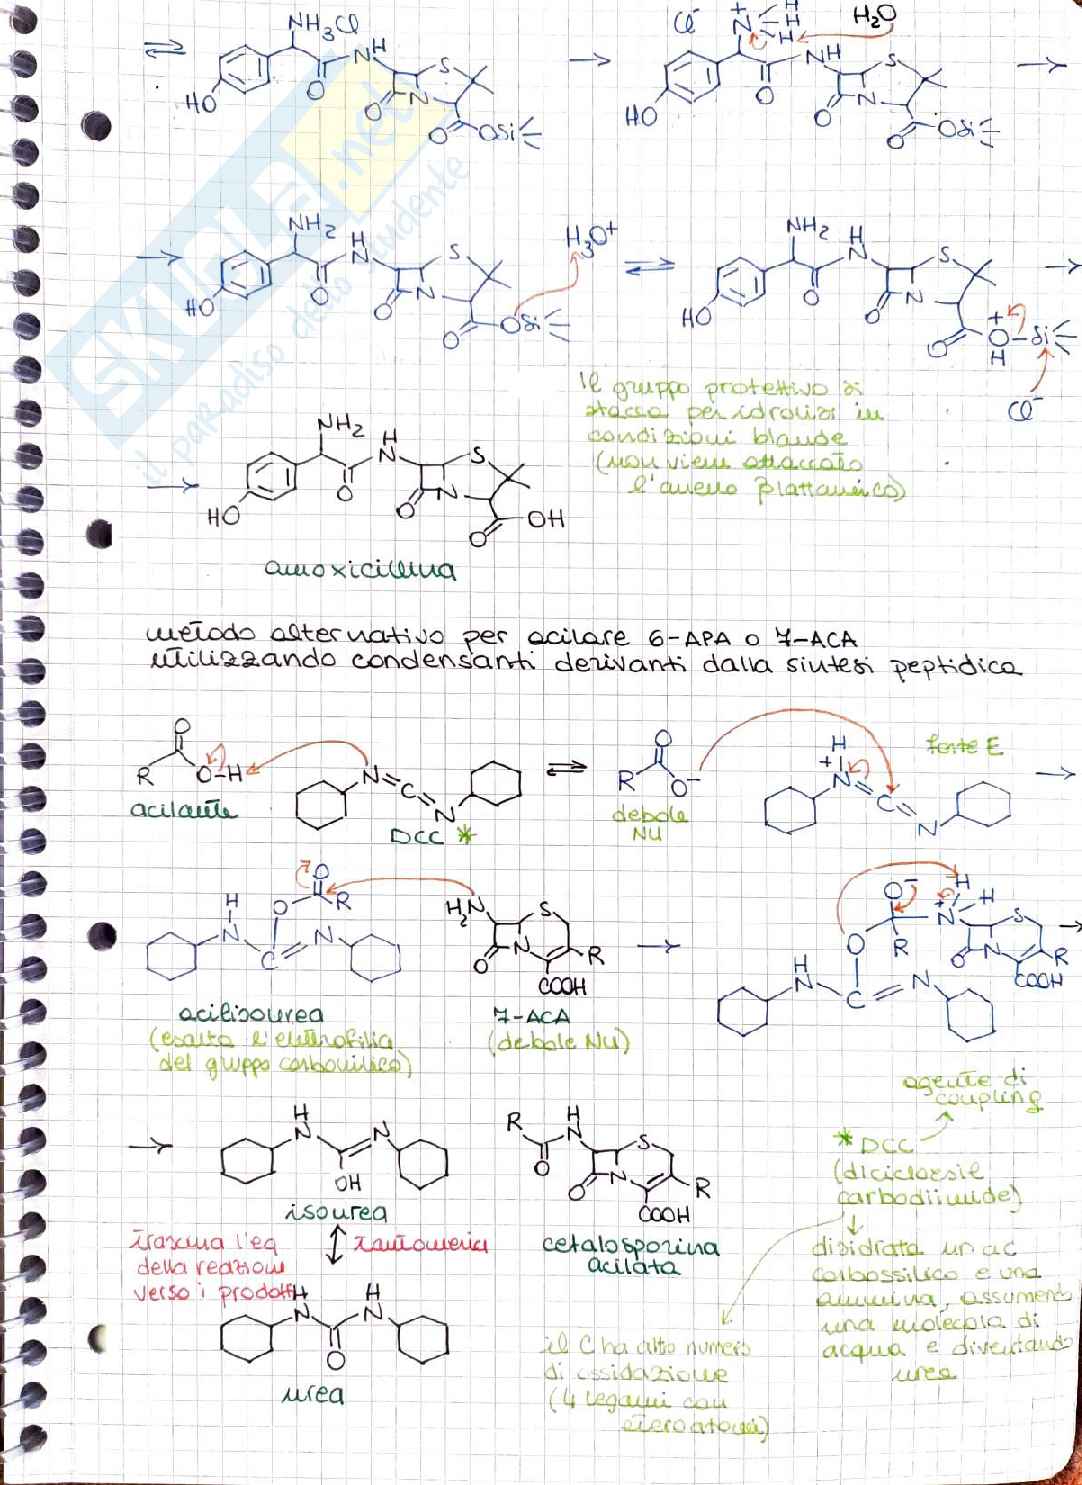 NH3Cl
NH
O
HO
S
O
N
O
OSi
Cl-
+
N
H
H
H
H2O
NH
O
HO
S
O
N
O
OSi
NH2
H
N
O
HO
S
O
N
O
OSi
H3O+
NH2
H
N
O
HO
S
O
N
O
+
O-Si
H
Cl-
Il gruppo protettivo si
stacca per idrolisi in
condizioni blande
(non viene attaccato
l'anello βlattamico)
NH2
H
N
O
HO
S
O
N
O
OH
amoxicillina
SKUOLA.net
il paradiso dello studente
metodo alternativo per acilare 6-APA o 7-ACA
utilizzando condensanti derivanti dalla sintesi peptidica
O
R
O-H
acilante
N=C=N
DCC *
O
R
O-
debole
NU
H
+
N=C=N
forte E
H
N
O
O
R
C=N
acilisourea
(esalta l'elettrofilia
del gruppo carbonilico)
H2N
S
O
N
R
COOH
7-ACA
(debole NU)
O-
H
+
N
H
O
R
S
O
N
R
COOH
H
N
C=N
agente di
coupling
H
N
N
OH
isourea
R
H
N
O
S
O
N
R
COOH
cefalosporina
acilata
* DCC
(dicicloesil
carbodiimide)
trascina l'eq
della reazione
verso i prodotti
tautomeria
H
N
H
N
O
urea
disidrata un ac
carbossilico e una
ammina, assumendo
una molecola di
acqua e diventando
urea
il C ha alto numero
di ossidazione
(4 legami con
eteroatomi)